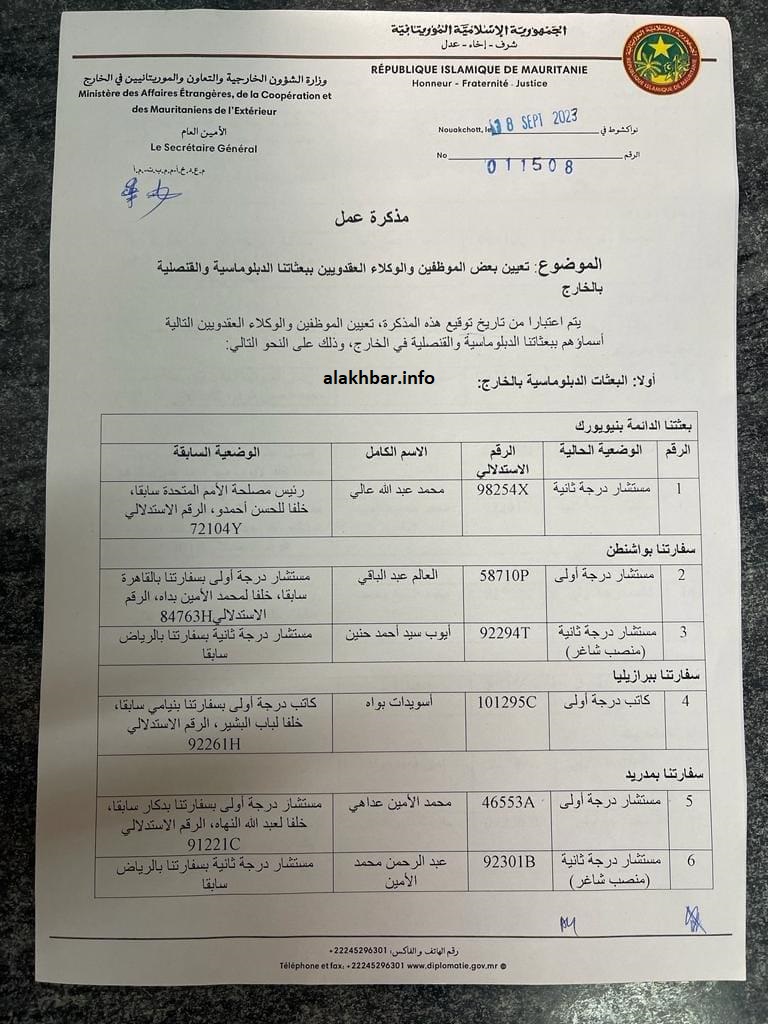 الجمهورية الإسلامية الموريتانية
شرف - إخاء - عدل
RÉPUBLIQUE ISLAMIQUE DE MAURITANIE
Honneur - Fraternité - Justice
وزارة الشؤون الخارجية والتعاون والموريتانيين في الخارج
Ministère des Affaires Étrangères, de la Coopération et
des Mauritaniens de l'Extérieur
الأمين العام
Le Secrétaire Général
م.ع.د.خ.أ.م.م.ب.ت.م.أ
Nouakchott, le 18 SEPT 2023 نواكشوط في
No 011508 الرقم
مذكرة عمل
الموضوع: تعيين بعض الموظفين والوكلاء العقدويين ببعثاتنا الدبلوماسية والقنصلية
بالخارج
يتم اعتبارا من تاريخ توقيع هذه المذكرة، تعيين الموظفين والوكلاء العقدويين التالية
أسماؤهم ببعثاتنا الدبلوماسية والقنصلية في الخارج، وذلك على النحو التالي:
alakhbar.info
أولا: البعثات الدبلوماسية بالخارج:
بعثتنا الدائمة بنيويورك
الرقم الوضعية الحالية الرقم الاسم الكامل الوضعية السابقة
الاستدلالي
1 مستشار درجة ثانية 98254X محمد عبد الله عالي رئيس مصلحة الأمم المتحدة سابقا،
خلفا للحسن أحمدو، الرقم الاستدلالي
72104Y
سفارتنا بواشنطن
2 مستشار درجة أولى 58710P العالم عبد الباقي مستشار درجة أولى بسفارتنا بالقاهرة
سابقا، خلفا لمحمد الأمين بداه، الرقم
الاستدلالي84763H
3 مستشار درجة ثانية 92294T أيوب سيد أحمد حنين مستشار درجة ثانية بسفارتنا بالرياض
(منصب شاغر) سابقا
سفارتنا ببرازيليا
4 كاتب درجة أولى 101295C أسويدات بواه كاتب درجة أولى بسفارتنا بنيامي سابقا،
خلفا لباب البشير، الرقم الاستدلالي
92261H
سفارتنا بمدريد
5 مستشار درجة أولى 46553A محمد الأمين عداهي مستشار درجة أولى بسفارتنا بدكار سابقا،
خلفا لعبد الله النهاه، الرقم الاستدلالي
91221C
6 مستشار درجة ثانية 92301B عبد الرحمن محمد مستشار درجة ثانية بسفارتنا بالرياض
(منصب شاغر) الأمين سابقا
رقم الهاتف والفاكس: 22245296301+
Téléphone et fax: +22245296301 www.diplomatie.gov.mr